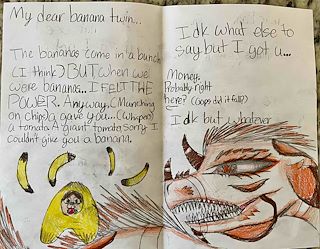 My dear banana twin...
The bananas come in a bunch
(I think) BUT when we
were bananas... I FELT THE
POWER. Anyway, (Munching
on chips) I gave you... (whispers)
a tomato. A giant tomato. Sorry I
couldn't give you a banana.
I dk what else to
say but I got u...
Money.
Probably right
here? (Oops did it fall?)
I dk but whatever